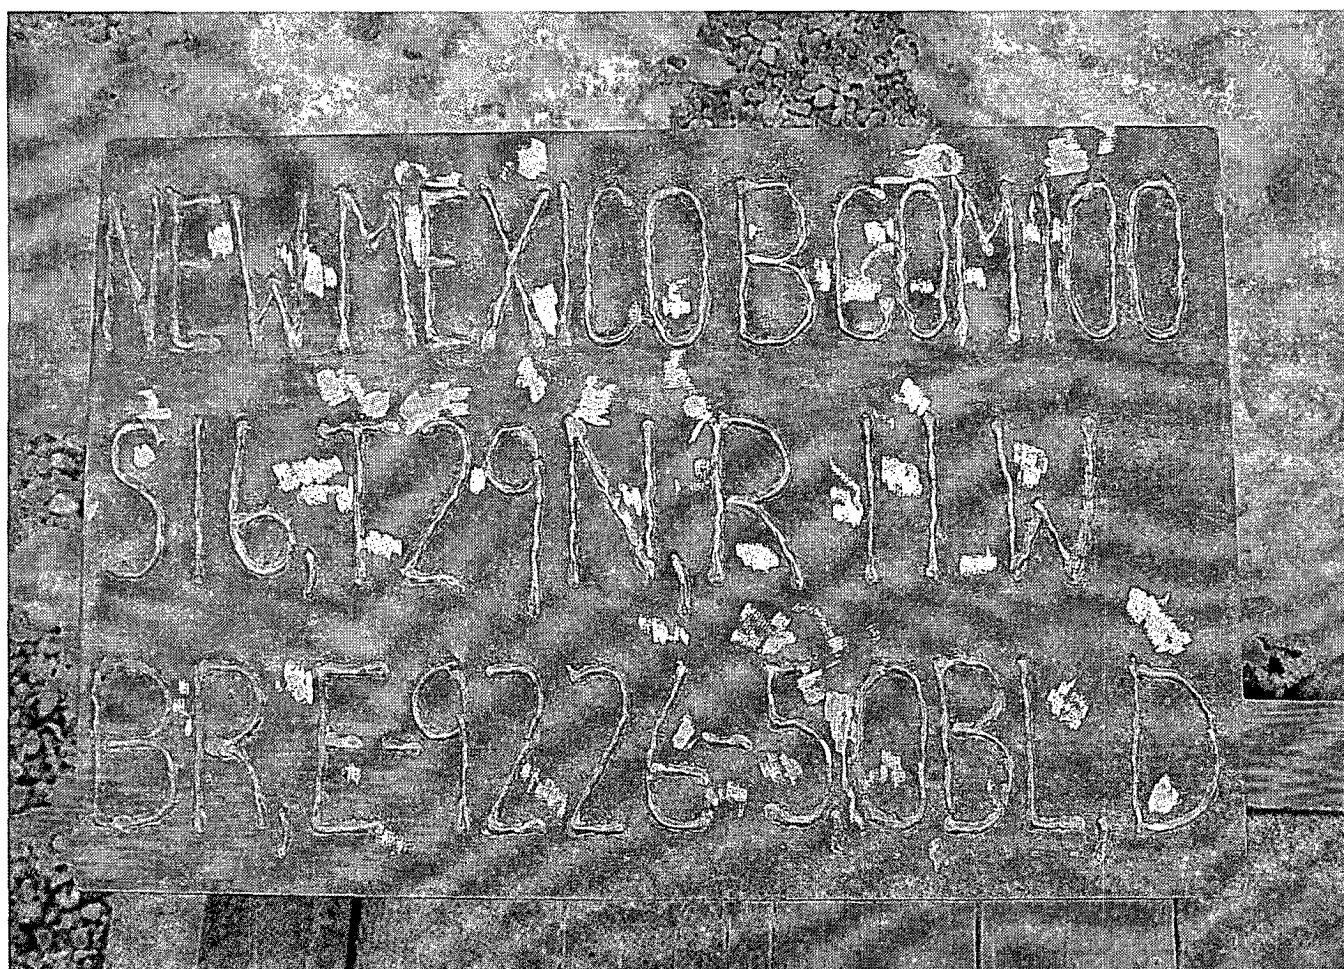 NEW MEXICO B COM 100
S16, T29N, R 11 W
BR, E-9226-50 BL, D